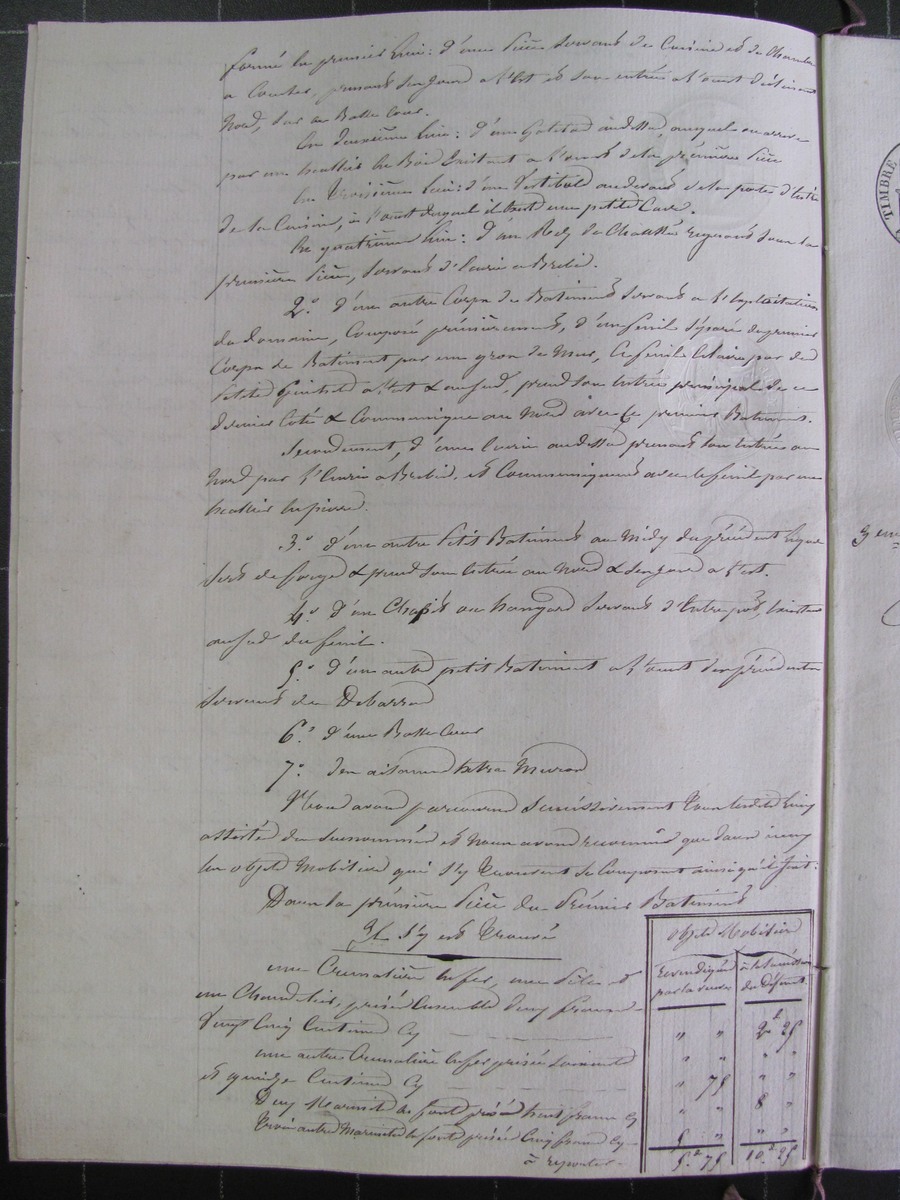 formé en premier lieu: d'une Pièce servant de Cuisine et de Chambre
a Coucher, prenant son jour a l'Est et son entrée a l'ouest
Nord, sur la Basse Cour.
En deuxième lieu: d'un Galetas au dessus, auquel on arrive
par un escallier en Bois Existant a l'ouest de la première Pièce
En Troisième lieu: d'un Vestibule au devant de la porte d'entrée
de la Cuisine, à l'ouest duquel il Existe une petite Cave.
En quatrième lieu: d'un Rez de Chaussée regnant sous la
première Pièce, servant d'Ecurie a Brebis.
2.° d'un autre Corps de Batiment servant a l'Exploitation
du domaine, Composé premièrement, d'un fenil séparé du premier
Corps de Batiment par un gros de Mur, Ce fenil Eclairé par de
Petites fenêtres a l'Est & au sud, prend son Entrée principal de ce
dernier Coté & Communique au Nord avec Ce premier Batiment.
Secondement, d'une Ecurie au dessous prenant son Entrée au
Nord par l'Ecurie a Brebis, et Communiquant avec le fenil par un
escallier en pierre.
3.° d'un autre Petit Batiment au Midy du précédent lequel
sert de forge & prend son Entrée au Nord & son jour a l'Est.
4.° d'un Chapis ou hangard servant d'Entrepôt,
au sud du fenil.
5.° d'un autre petit Batiment a l'ouest des précédents
servant de Debarras
6.° d'une Basse Cour
7.° d'un
Nous avons parcouru Successivement Tous les dits lieux
assisté des susnommés et nous avons reconnu que dans iceux
les objets Mobiliers qui s'y Trouvent se Composent ainsi qu'il suit:
Dans la première Pièce du Premier Batiment
Il s'y est Trouvé
objets Mobiliers
Revendiqués par la veuve
de la succession du Défunt
une Crémaillère en fer, une Pèle et
un Chandelier, prisés Ensemble deux francs
Vingt Cinq Centimes Cy " " 2f 25
une autre Crémaillère en fer prisée soixante
et quinze Centimes Cy " 75 " "
Deux Marmites de fonte prisés huit francs Cy " " 8 "
Trois autres Marmites de fonte prisées Cinq francs Cy 5 " " "
à reporter. 5f 75 10f 25
TIMBRE